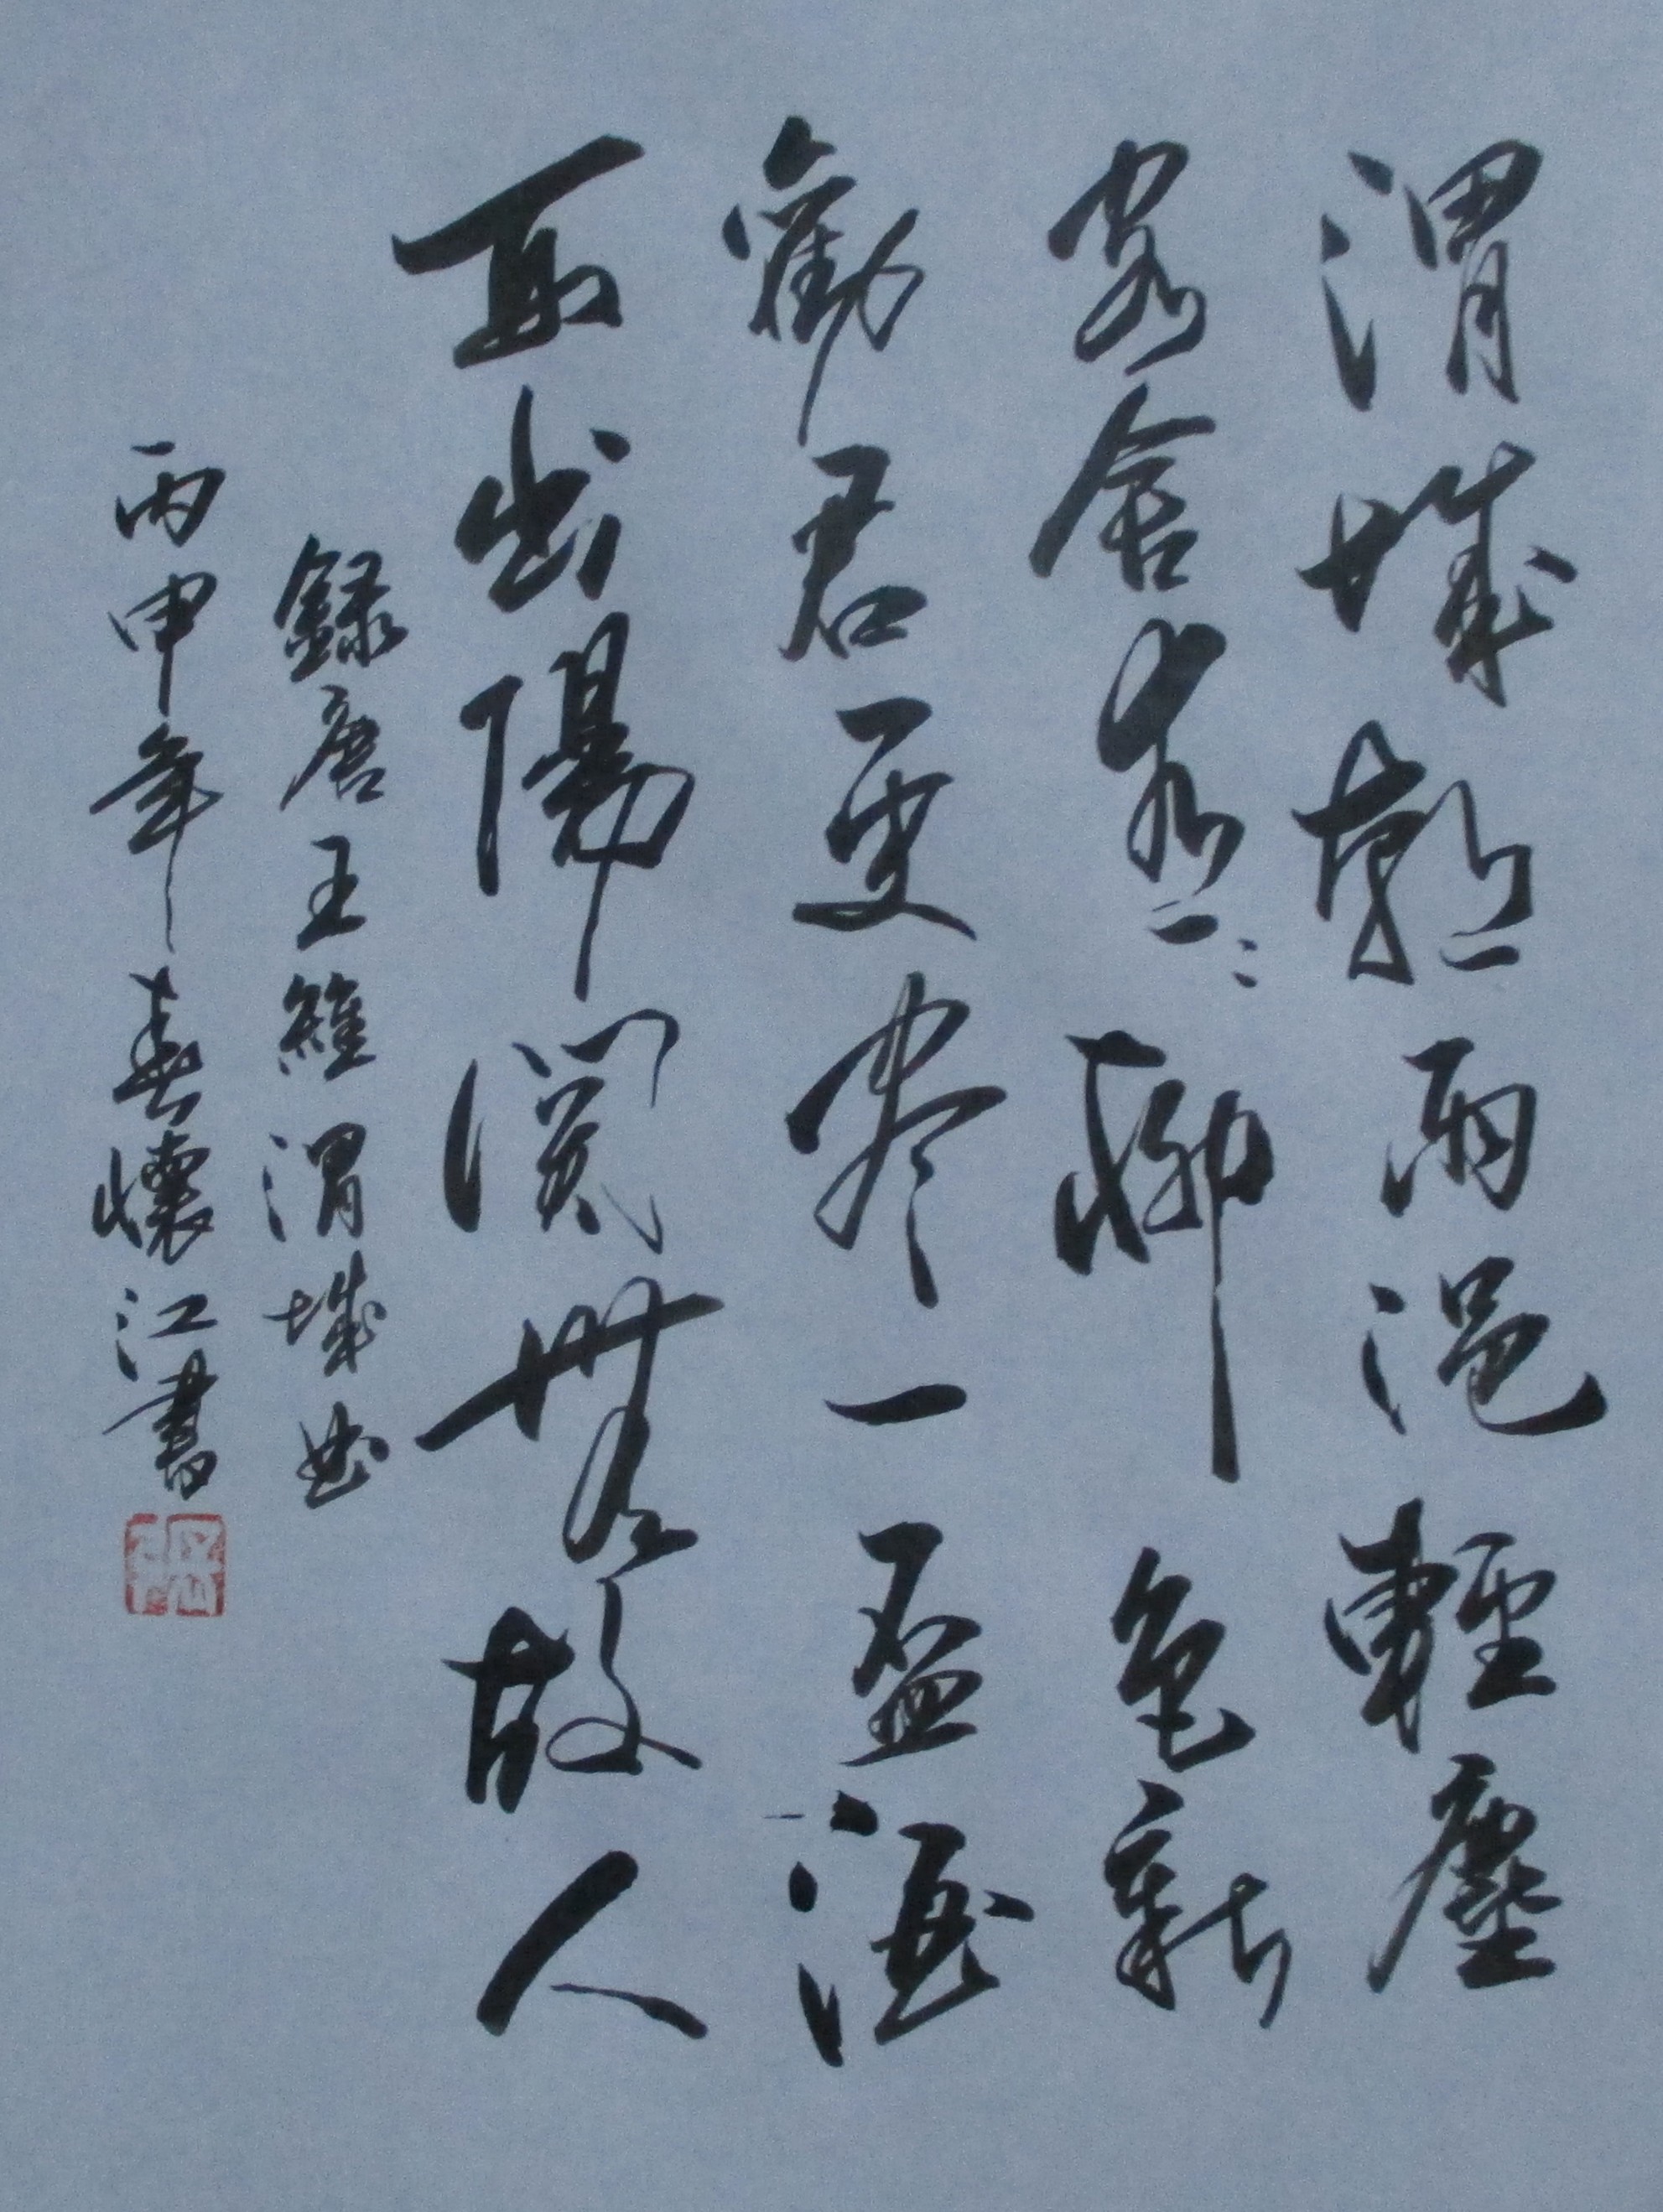 渭城朝雨浥輕塵
客舍青〻柳色新
勸君更尽一盃酒
西出陽関無故人
録唐王維渭城曲
丙申年春懷江書